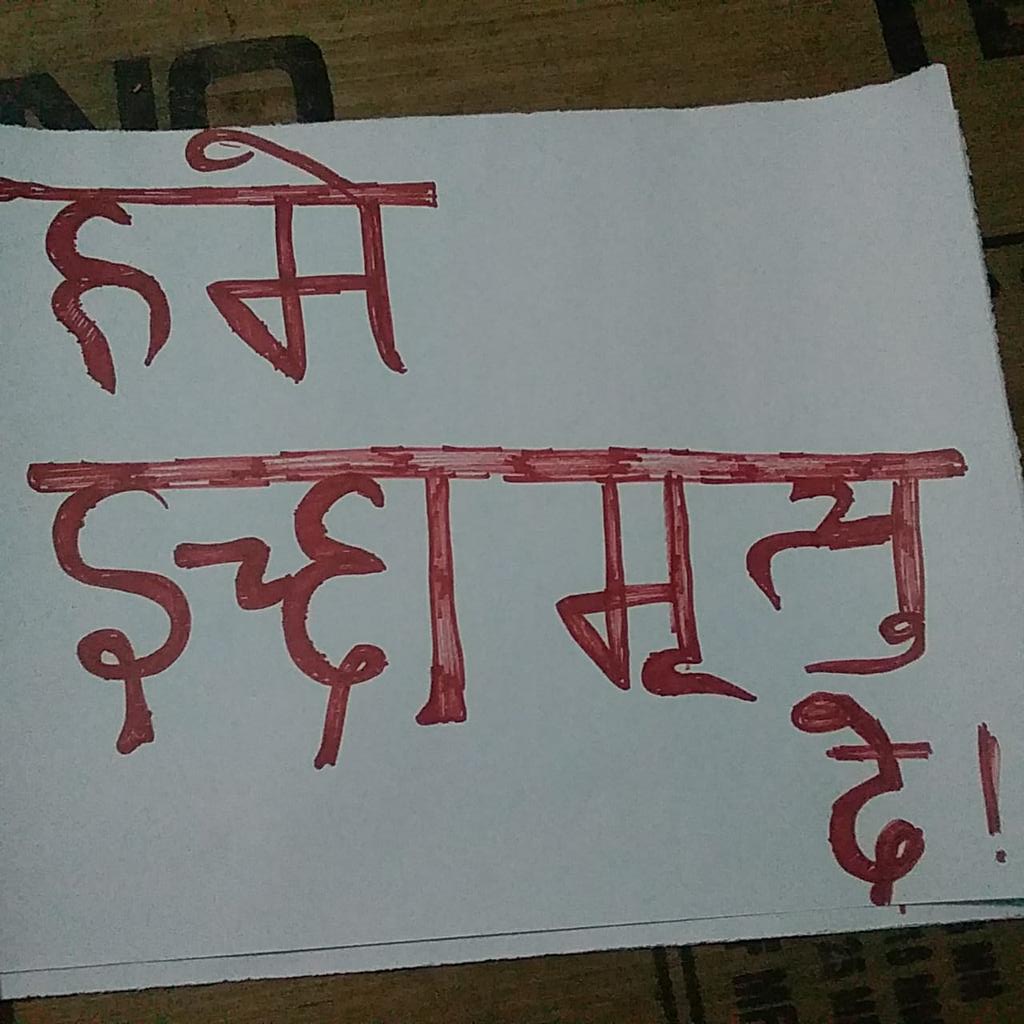 हमे
इच्छा मृत्यु
दे !